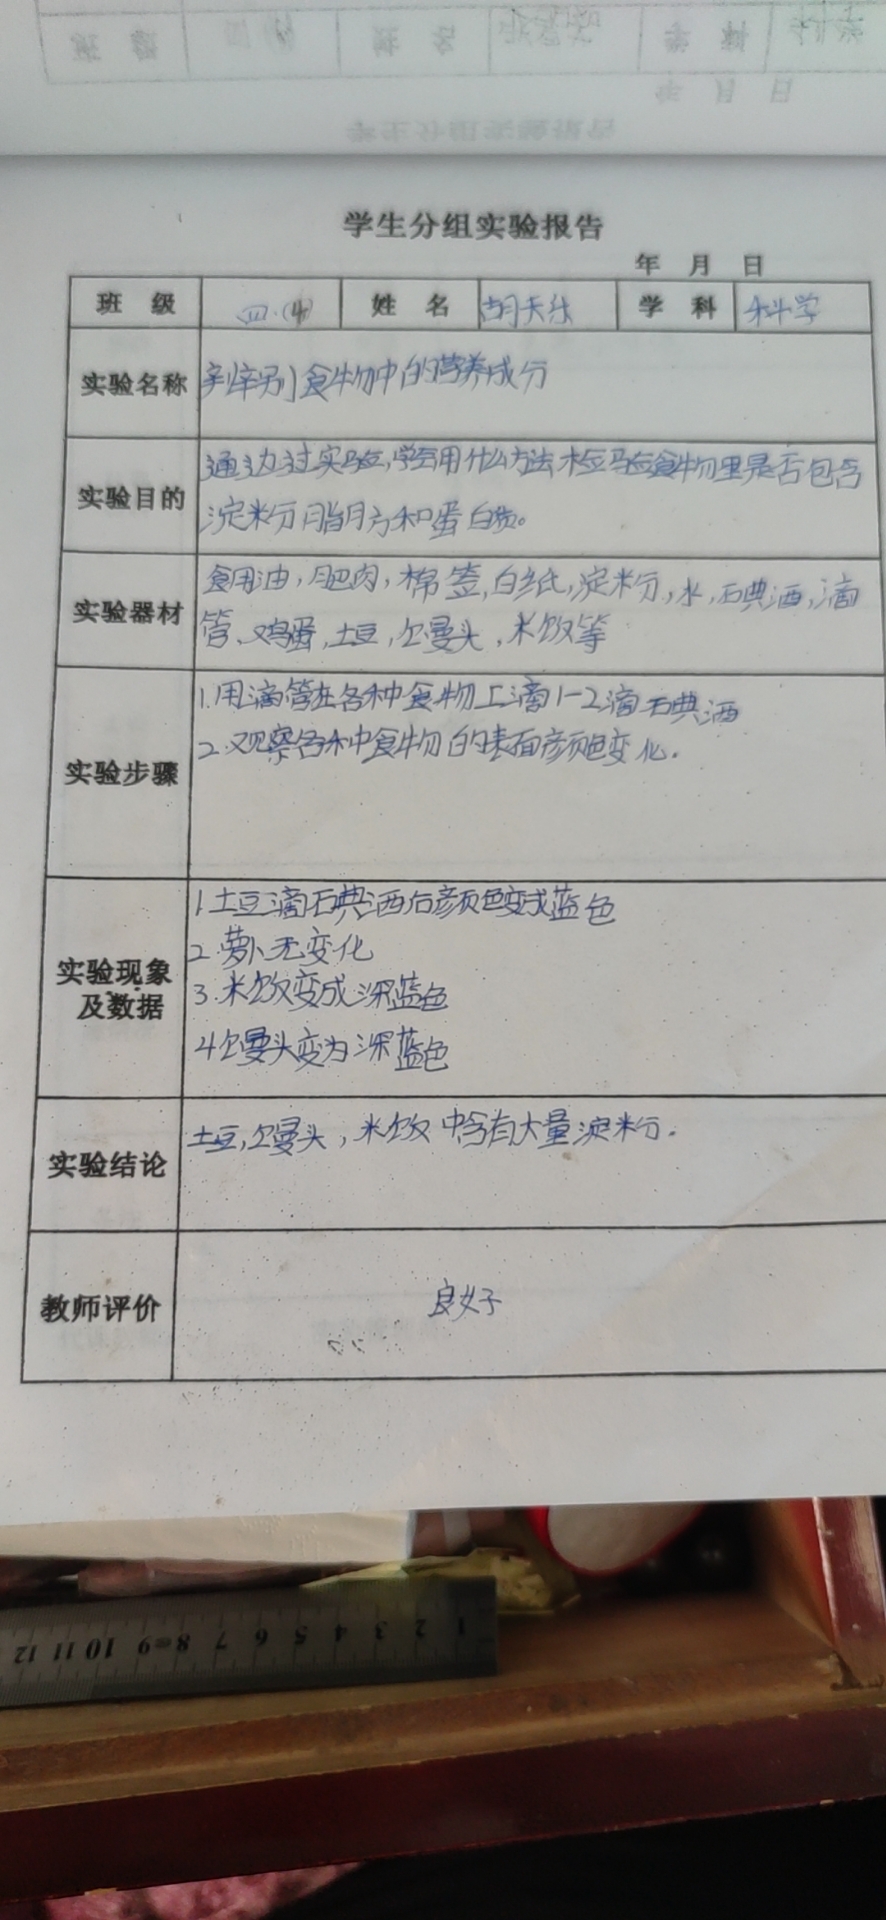 学生分组实验报告
年 月 日
班 级 四.(4) 姓 名 胡天乐 学 科 科学
实验名称 辨别食物中的营养成分
实验目的 通过实验,学会用什么方法检验食物里是否包含
淀粉脂肪和蛋白质。
实验器材 食用油,肥肉,棉签,白纸,淀粉,水,石典酒,滴
管、鸡蛋,土豆,馒头,米饭等
实验步骤 1.用滴管在各种食物上滴1-2滴石典酒
2.观察各种食物的表面颜色变化.
实验现象
及数据
1土豆滴石典酒后颜色变成蓝色
2.萝卜无变化
3.米饭变成深蓝色
4馒头变为深蓝色
实验结论 土豆,馒头,米饭中含有大量淀粉.
教师评价 良好
1 2 3 4 5 6 7 8 9 10 11 12